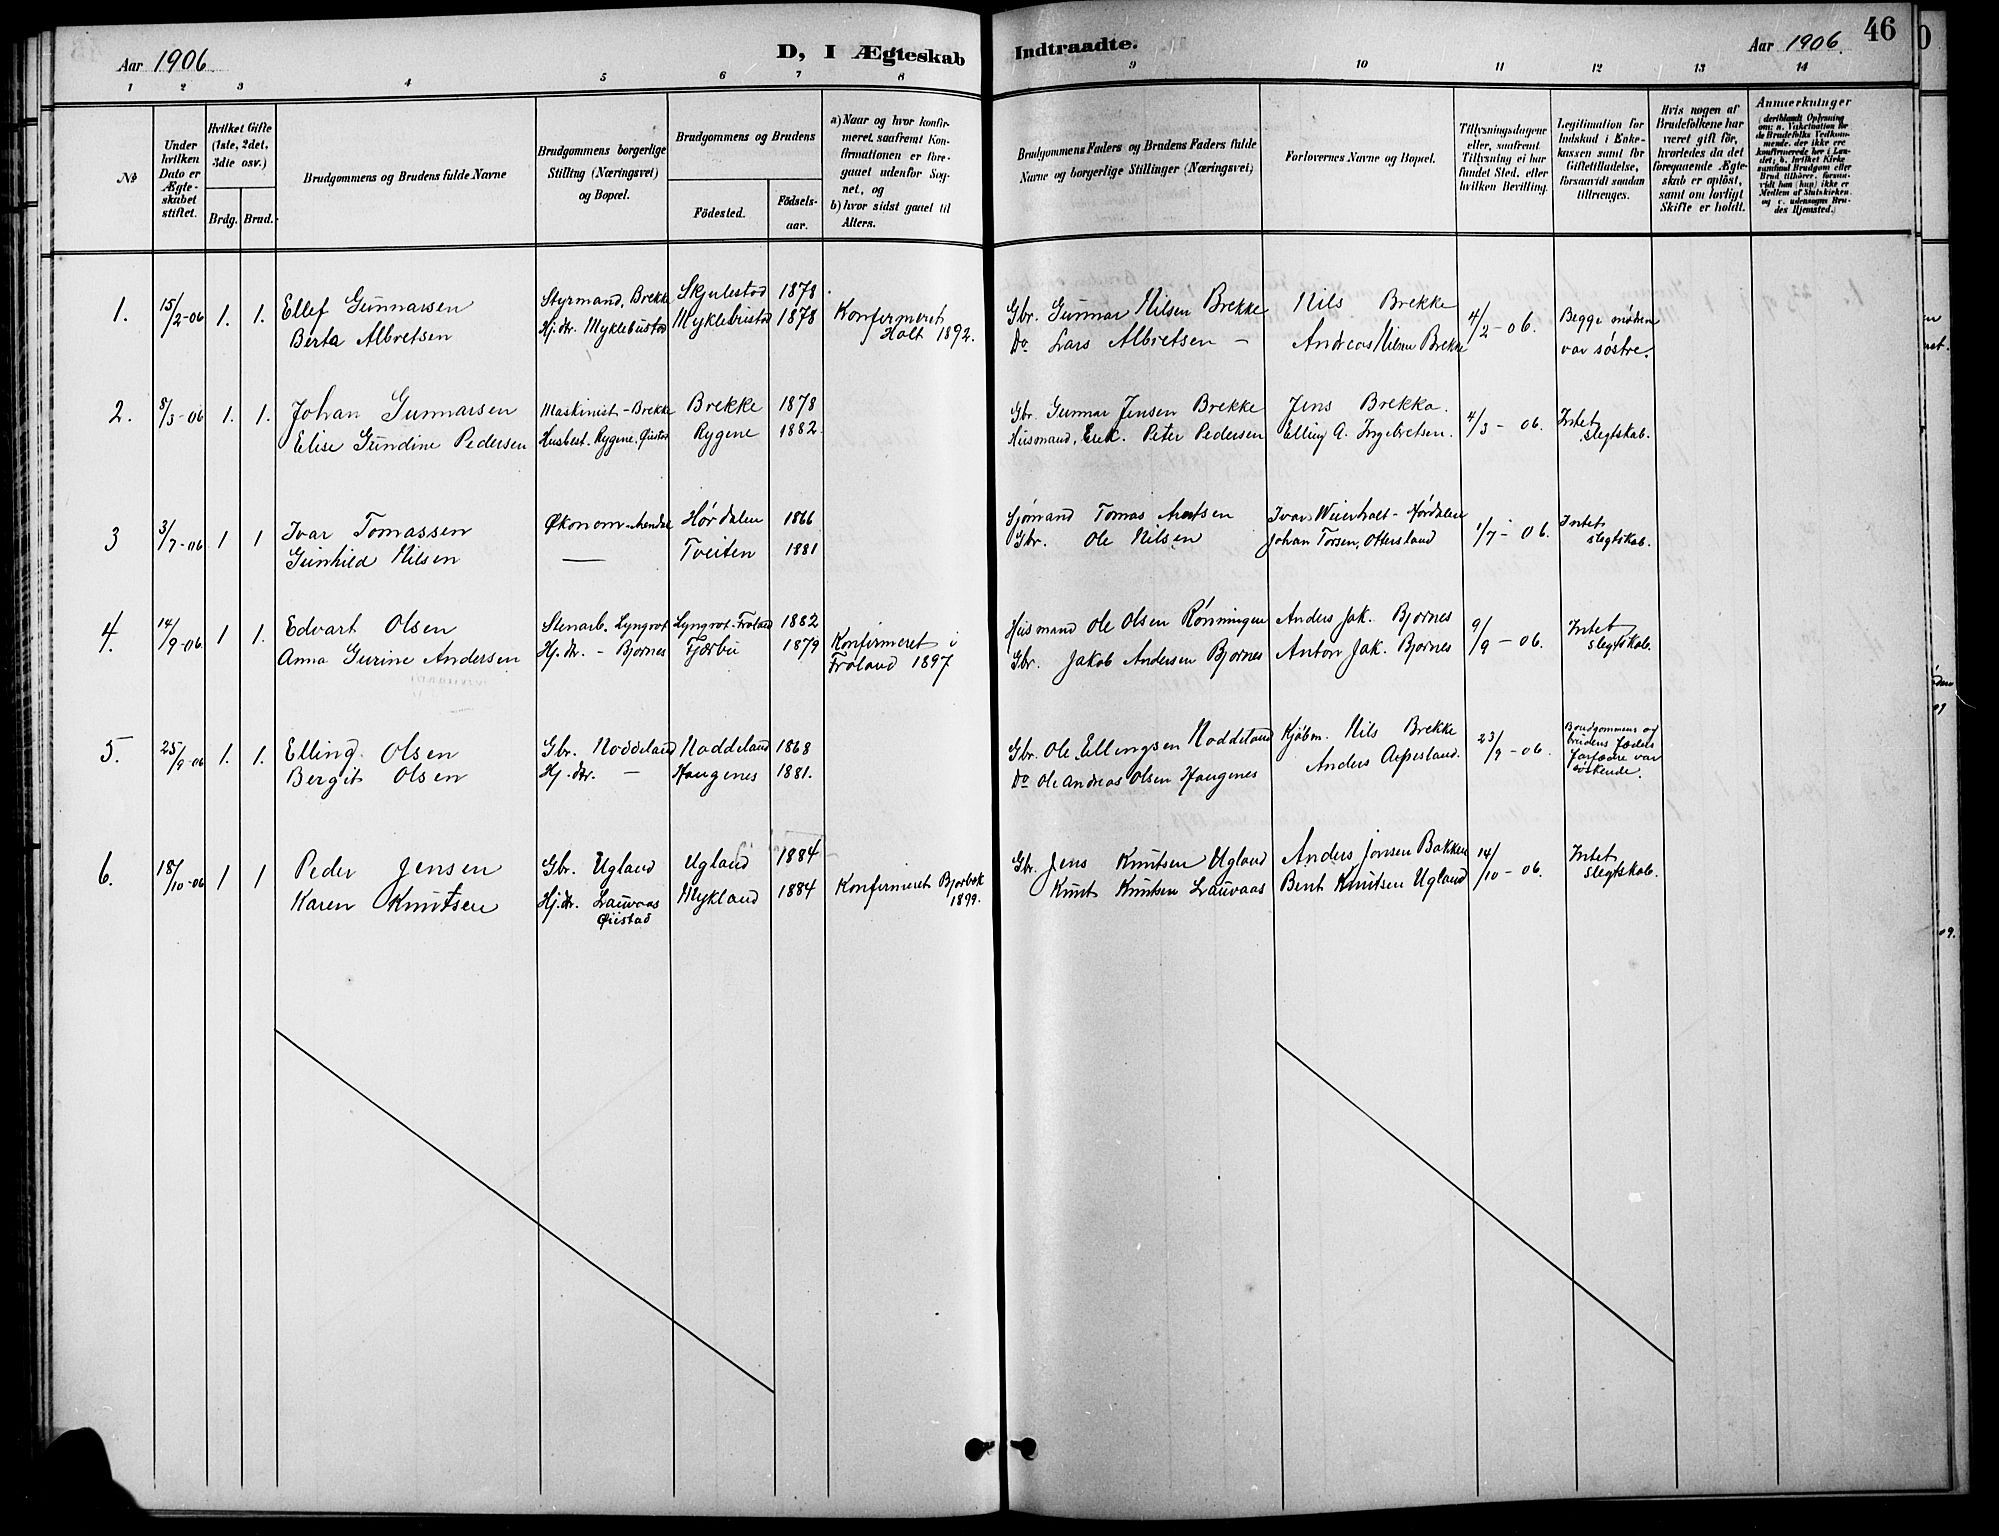 46
Aar 1906
D, I Ægteskab Indtraadte.
Aar 1906.
1 2 3 4 5 6 7 8 9 10 11 12 13 14
No
Under hvilken Dato er Ægteskabet stiftet.
Hvilket Gifte (1ste, 2det, 3die osv.)
Brdg. Brud.
Brudgommens og Brudens fulde Navne
Brudgommens borgerlige Stilling (Næringsvei) og Bopæl.
Brudgommens og Brudens
Fødested.
Fødsels-aar.
a) Naar og hvor konfirmeret, saafremt Konfirmationen er foregaaet udenfor Sognet, og
b) hvor sidst gaaet til Alters.
Brudgommens Faders og Brudens Faders fulde Navne og borgerlige Stillinger (Næringsvei)
Forlovernes Navne og Bopæl.
Tillysningsdagene eller, saafremt Tillysning ei har fundet Sted, efter hvilken Bevilling.
Legitimation for Indskud i Enkekassen samt for Giftetilladelse, forsaavidt saadan tiltrænges.
Hvis nogen af Brudefolkene har været gift før, hvorledes da det foregaaende Ægteskab er opløst, samt om lovligt Skifte er holdt.
Anmerkninger
(deriblandt Oplysning om: a. Vakcination for de Brudefolks Vedkommende, der ikke ere konfirmerede her i Landet; b. hvilket Kirkesamfund Brudgom eller Brud tilhører, forsaavidt han (hun) ikke er Medlem af Statskirken, og c. udensogns Brudes Hjemsted.)
1. 15/2-06 1. 1. Ellef Gunnarsen Styrmand, Brekke Skjulestad 1878 Gbr. Gunnar Nilsen Brekke Nils Brekke 4/2-06. Begge mødre
Berta Albretsen Hj. dtr. Myklebustad Myklebustad 1878 Konfirmeret Holt 1892. Do Lars Albretsen - Andreas Nilsen Brekke var søstre.
2. 8/3-06 1. 1. Johan Gunnarsen Maskinist-Brekke Brekke 1878 Gbr. Gunnar Jensen Brekke Jens Brekka. 4/3-06. Intet
Elise Gundine Pedersen Husbest. Rygene, Øiestad Rygene 1882. Husmand, Peter Pedersen Elling A. Ingebretsen. slegtskab.
3 3/7-06 1 1 Ivar Tomassen Økonom-Arendal Hørdalen 1866 Sjømand Tomas Ivar Weierholt-Hørdalen 1/7-06. Intet
Gunhild Nilsen — Tveiten 1881 Gbr. Ole Nilsen Johan Torsen, Ottersland slegtskab.
4. 14/9-06 1 1. Edvart Olsen Stenarb. Lyngrot Lyngrot-Froland 1882 Husmand Ole Olsen Rønningen Anders Jak. Bjornes 9/9-06. Intet
Anna Gurine Andersen Hj. dtr. - Bjornes Tjærbu 1879 Konfirmeret i Froland 1897 Gbr. Jakob Andersen Bjornes Anton Jak. Bjornes slegtskab.
5. 25/9-06 1. 1. Elling Olsen Gbr. Noddeland Noddeland 1868 Gbr. Ole Ellingsen Noddeland Kjøbm. Nils Brekke 23/9-06. Brudgommens og brudens
Bergit Olsen Hj. dtr. - Haugenes 1881. Do Ole Andreas Olsen Haugenes Anders farfædre var søskende.
6. 18/10-06 1 1 Peder Jensen Gbr. Ugland Ugland 1884 Gbr. Jens Knutsen Ugland Anders Jensen Bakken 14/10-06. Intet
Karen Knutsen Hj. dtr. Lauvaas Øiestad Mykland 1884 Konfirmeret 1899. Knut Knutsen Lauvaas Bent Knutsen Ugland slegtskab.